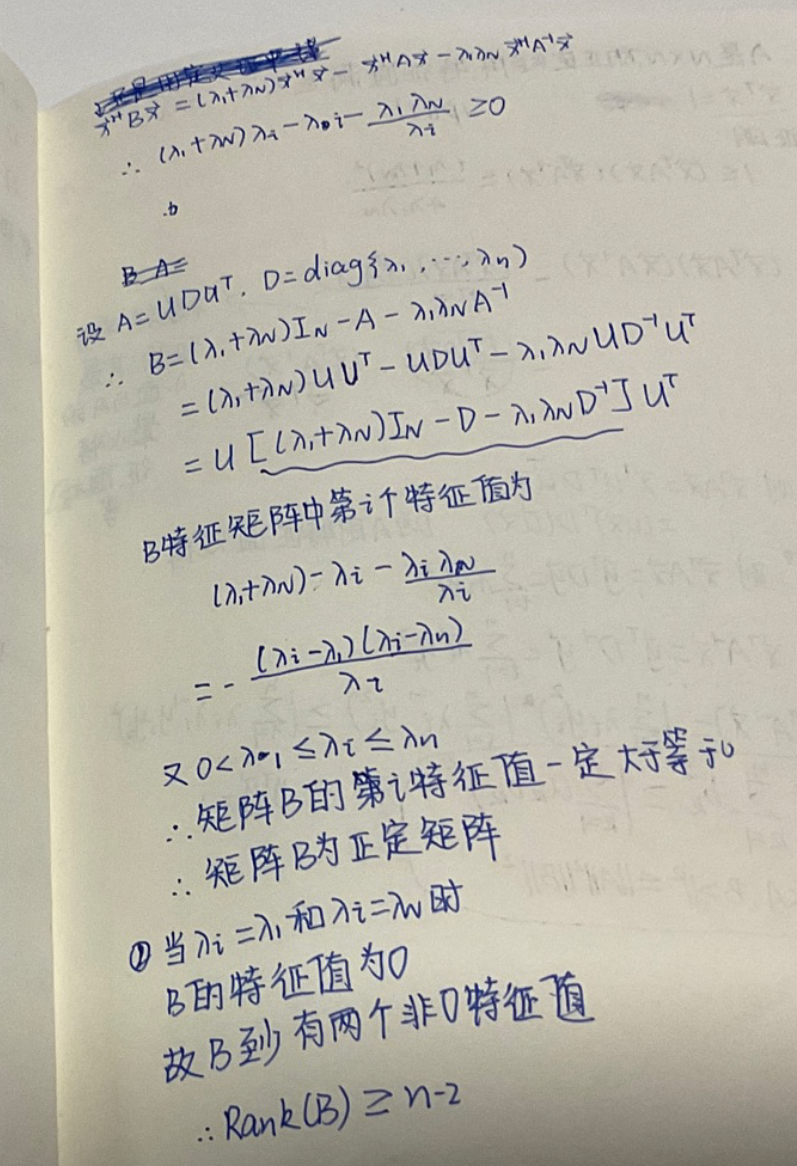 x⃗ᴴBx⃗ = (λ₁+λN)x⃗ᴴx⃗ - x⃗ᴴAx⃗ - λ₁λN x⃗ᴴA⁻¹x⃗
∴ (λ₁+λN)λi - λi - λ₁λN/λi ≥0
B A=
设 A=UDUᵀ. D=diag{λ₁, ⋯, λn)
∴ B=(λ₁+λN)IN-A-λ₁λNA⁻¹
=(λ₁+λN)UUᵀ-UDUᵀ-λ₁λNUD⁻¹Uᵀ
=U[(λ₁+λN)IN-D-λ₁λND⁻¹]Uᵀ
B特征矩阵中第i个特征值为
(λ₁+λN)-λi-λiλN/λi
=-(λi-λ₁)(λi-λn)/λi
又0<λ₁≤λi≤λn
∴矩阵B的第i特征值一定大于等于0
∴矩阵B为正定矩阵
②当λi=λ₁和λi=λN时
B的特征值为0
故B至少有两个非0特征值
∴Rank(B)≥n-2